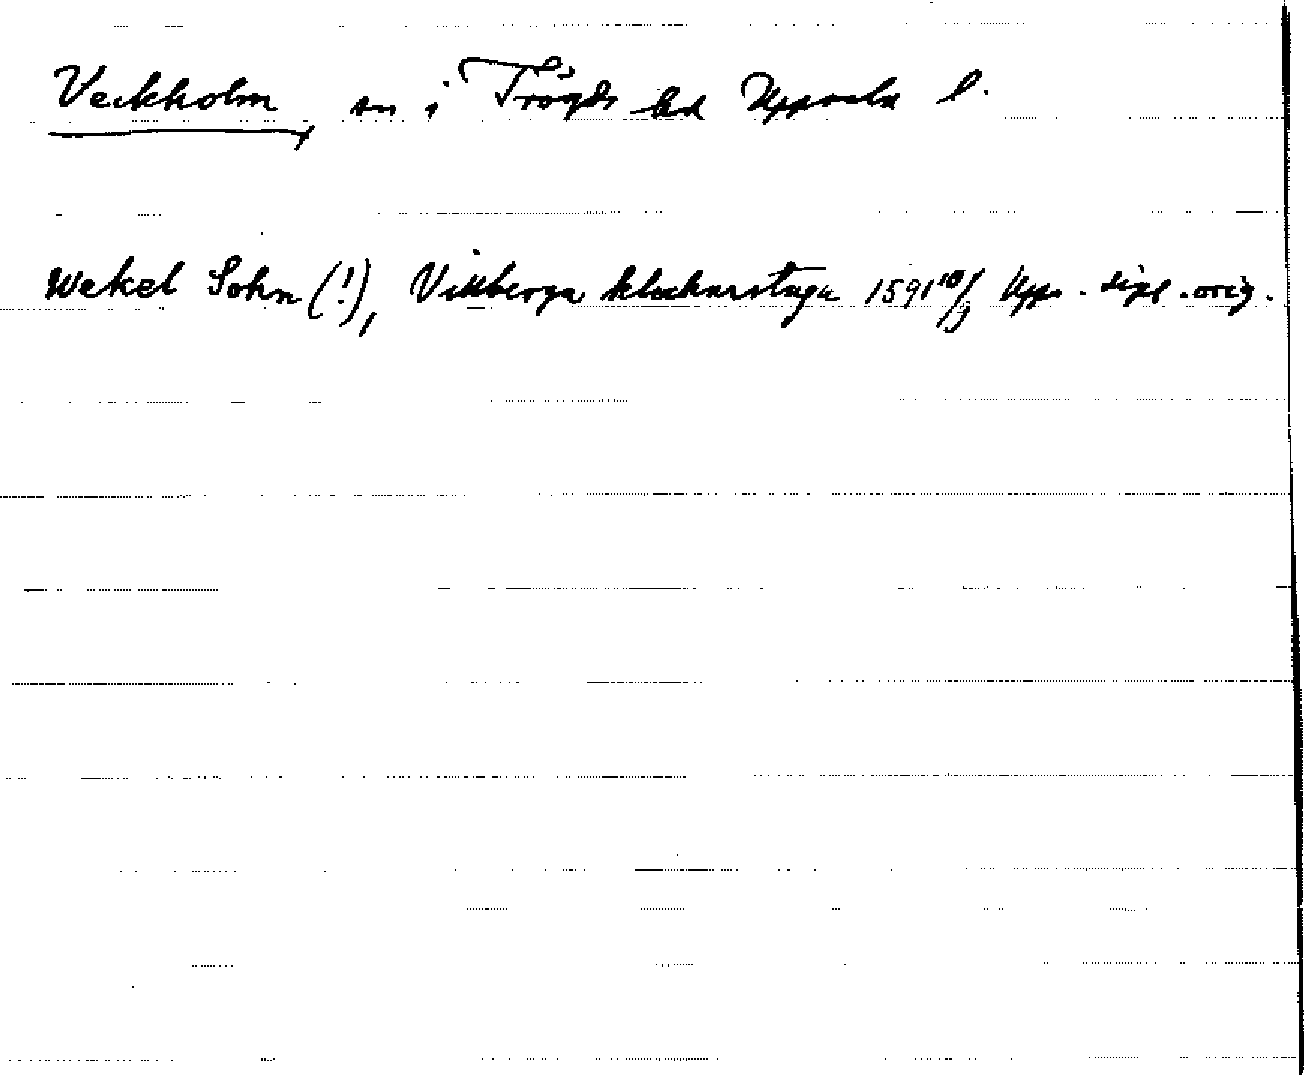 Veckholm, sn i Trögds hd Uppsala l.
Wekel Sokn (!), Vikberga klockarstuga 1591 10/9 Upps. dipl. orig.